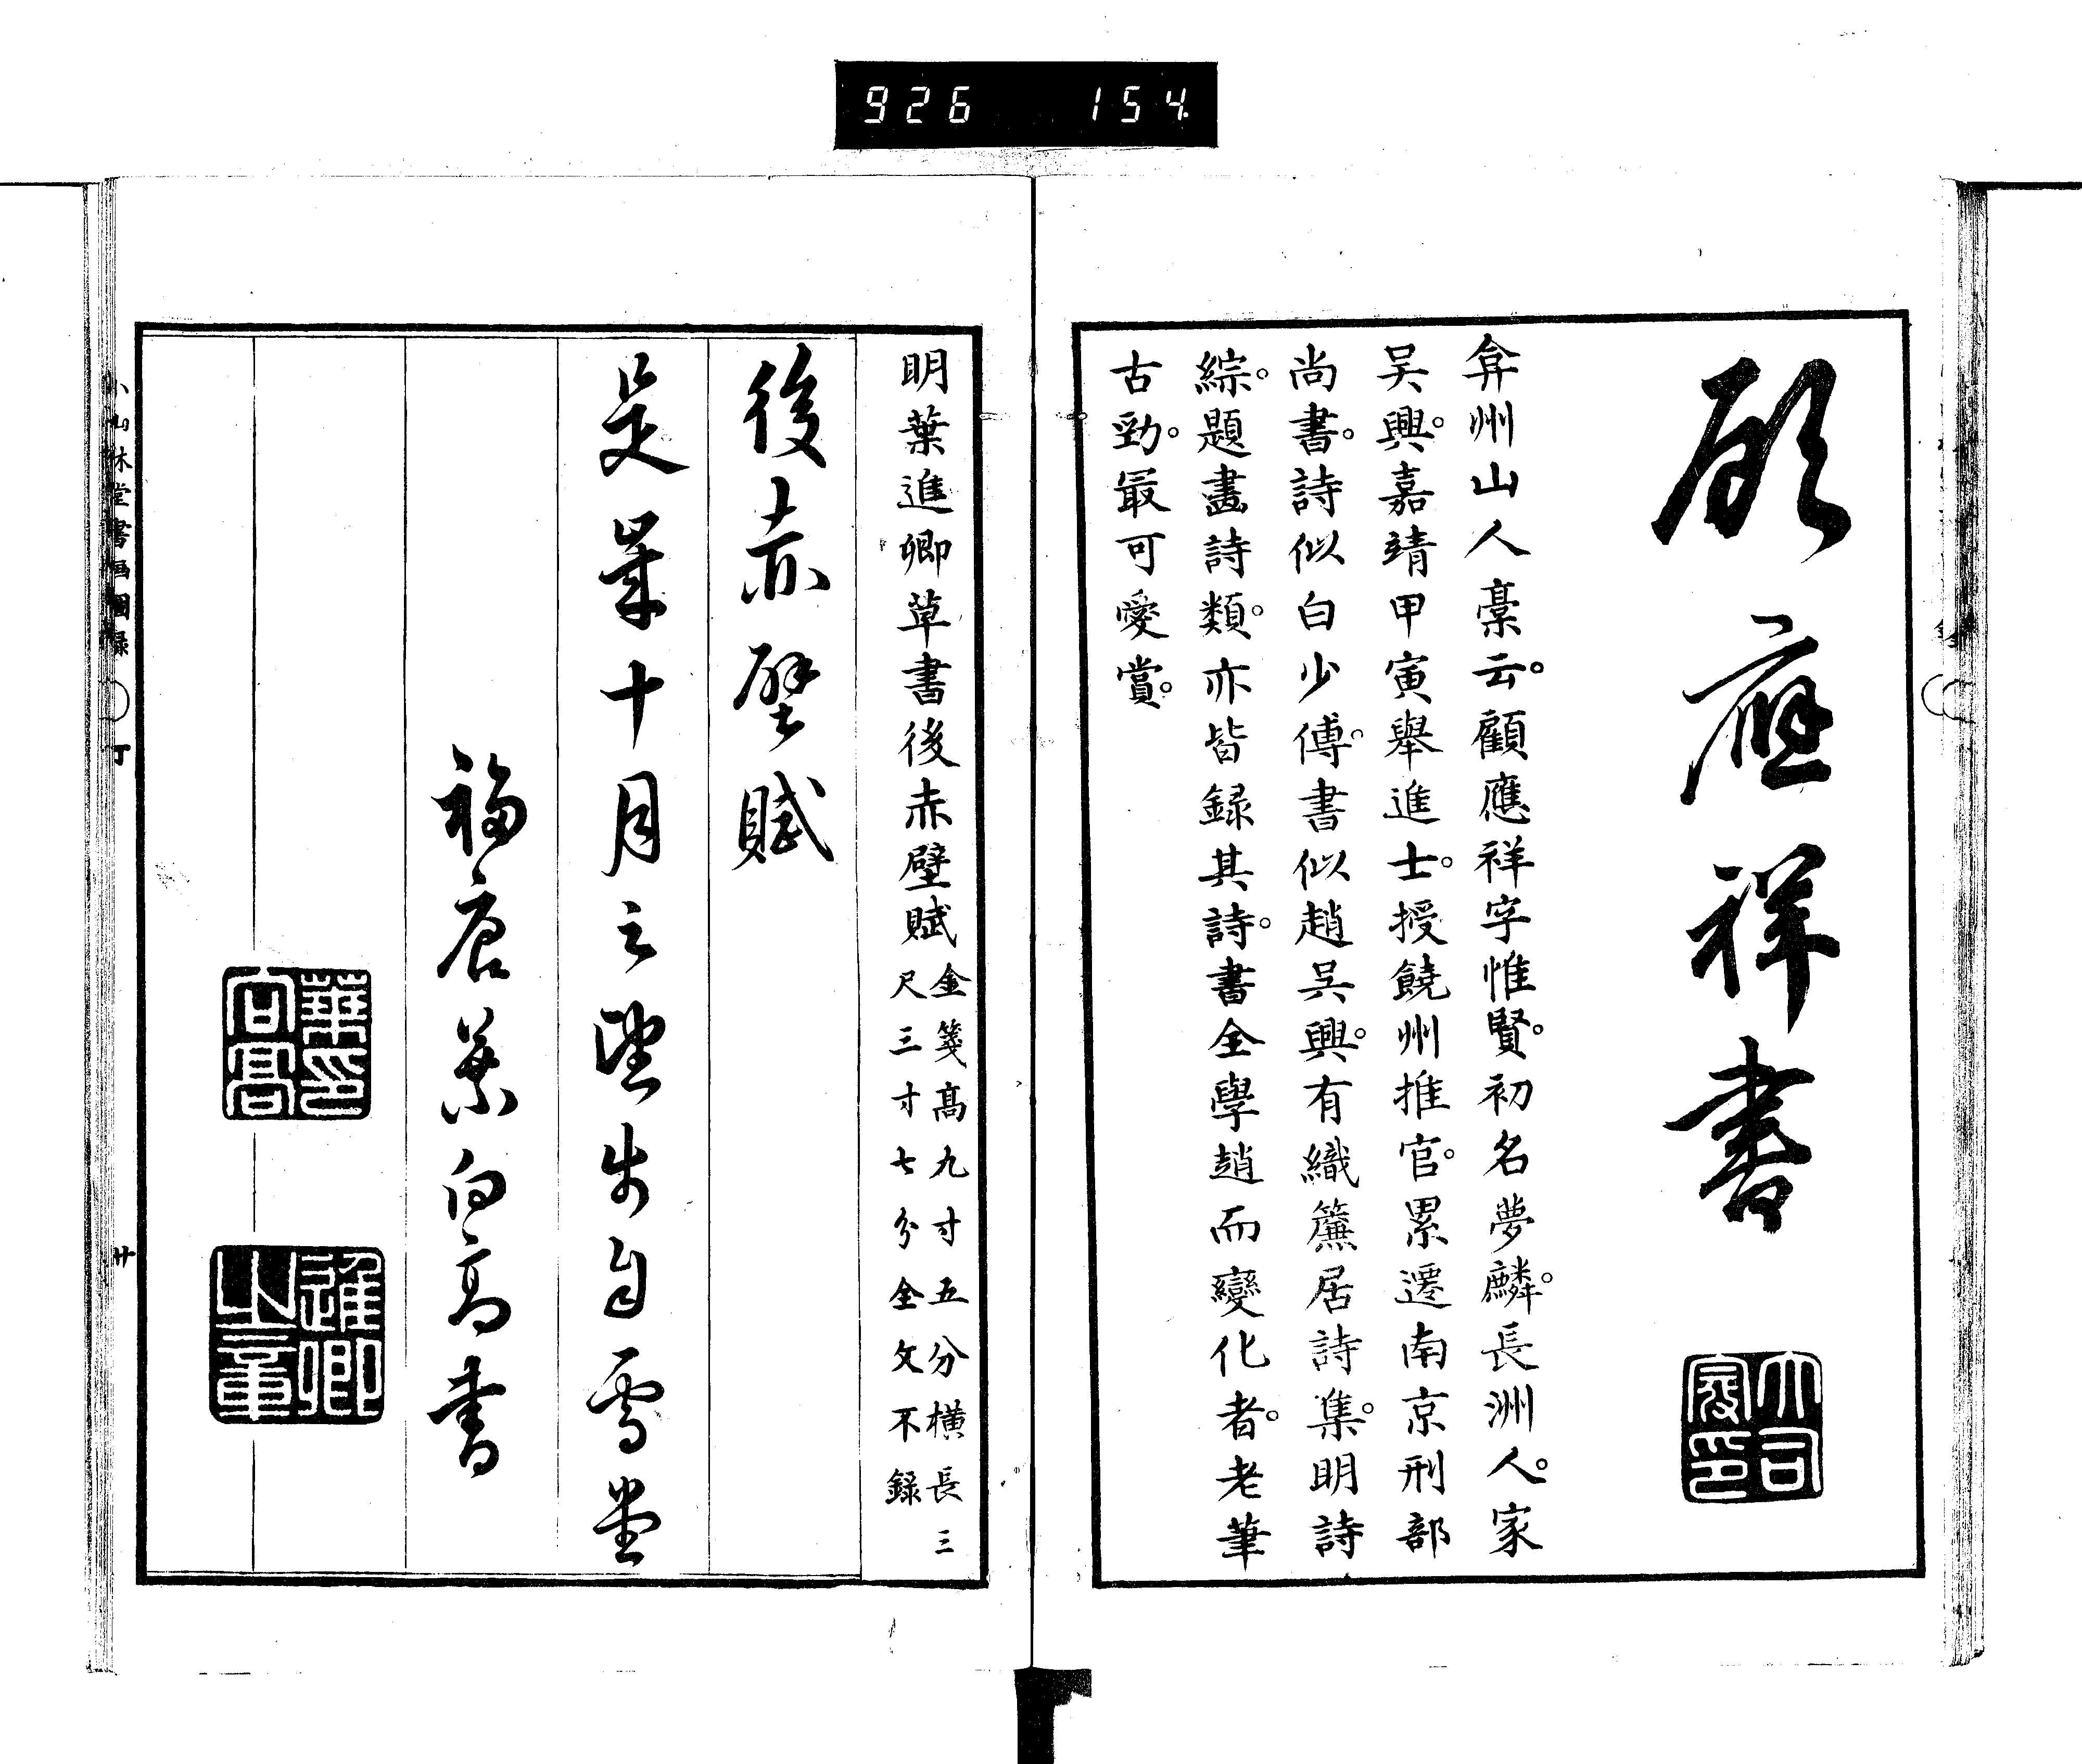 926 154.
顧應祥書
大司寇印
弇州山人稾云。顧應祥字惟賢。初名夢麟。長洲人。家
吴興。嘉靖甲寅舉進士。授饒州推官。累遷南京刑部
尚書。詩似白少傅。書似趙吴興。有織簾居詩集。明詩
綜。題畫詩類。亦皆録其詩。書全學趙而變化者。老筆
古勁。最可愛賞。
明葉進卿草書後赤壁賦 金箋高九寸五分橫長三
尺三寸七分全文不録
後赤壁賦
是歲十月之望步自雪堂
福唐葉向高書
葉印向高
進卿之章
小山林堂書画圖録 丁 廿